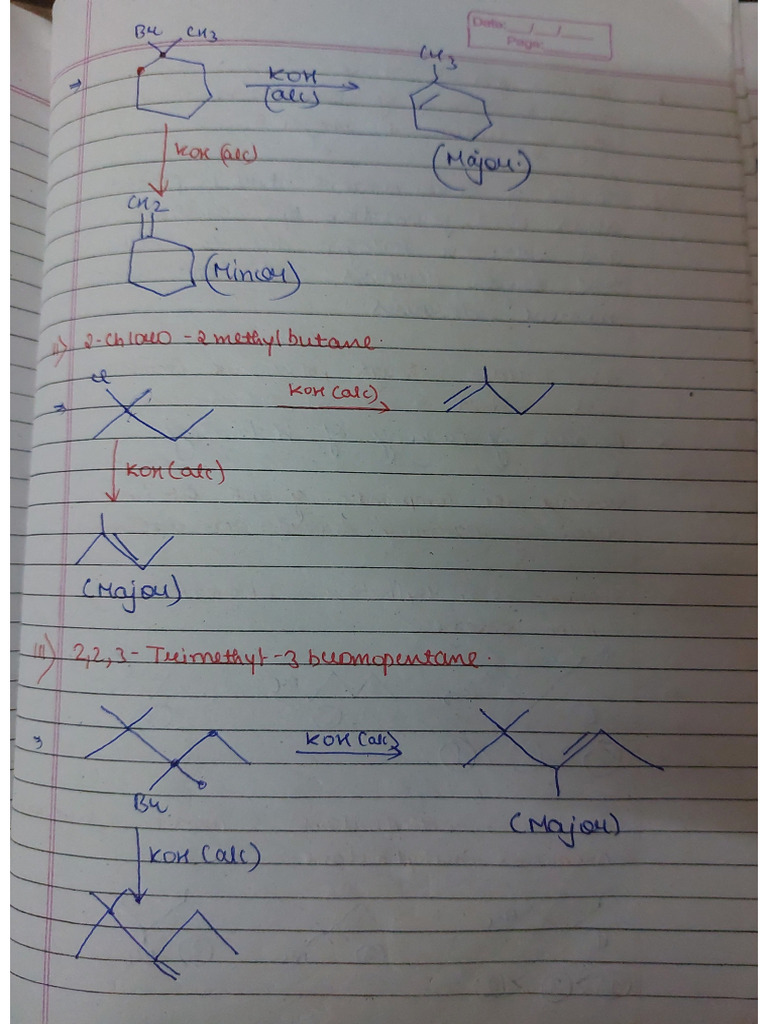 Date: __/__/__
Page:
Br CH3
CH3
⇒ KOH
(alc)
KOH (alc)
(Major)
CH2
(Minor)
ii) 2-Chloro-2 methyl butane.
Cl
⇒ KOH (alc)
KOH (alc)
(Major)
iii) 2,2,3-Trimethyl-3 bromopentane.
⇒ KOH (alc)
Br
(Major)
KOH (alc)